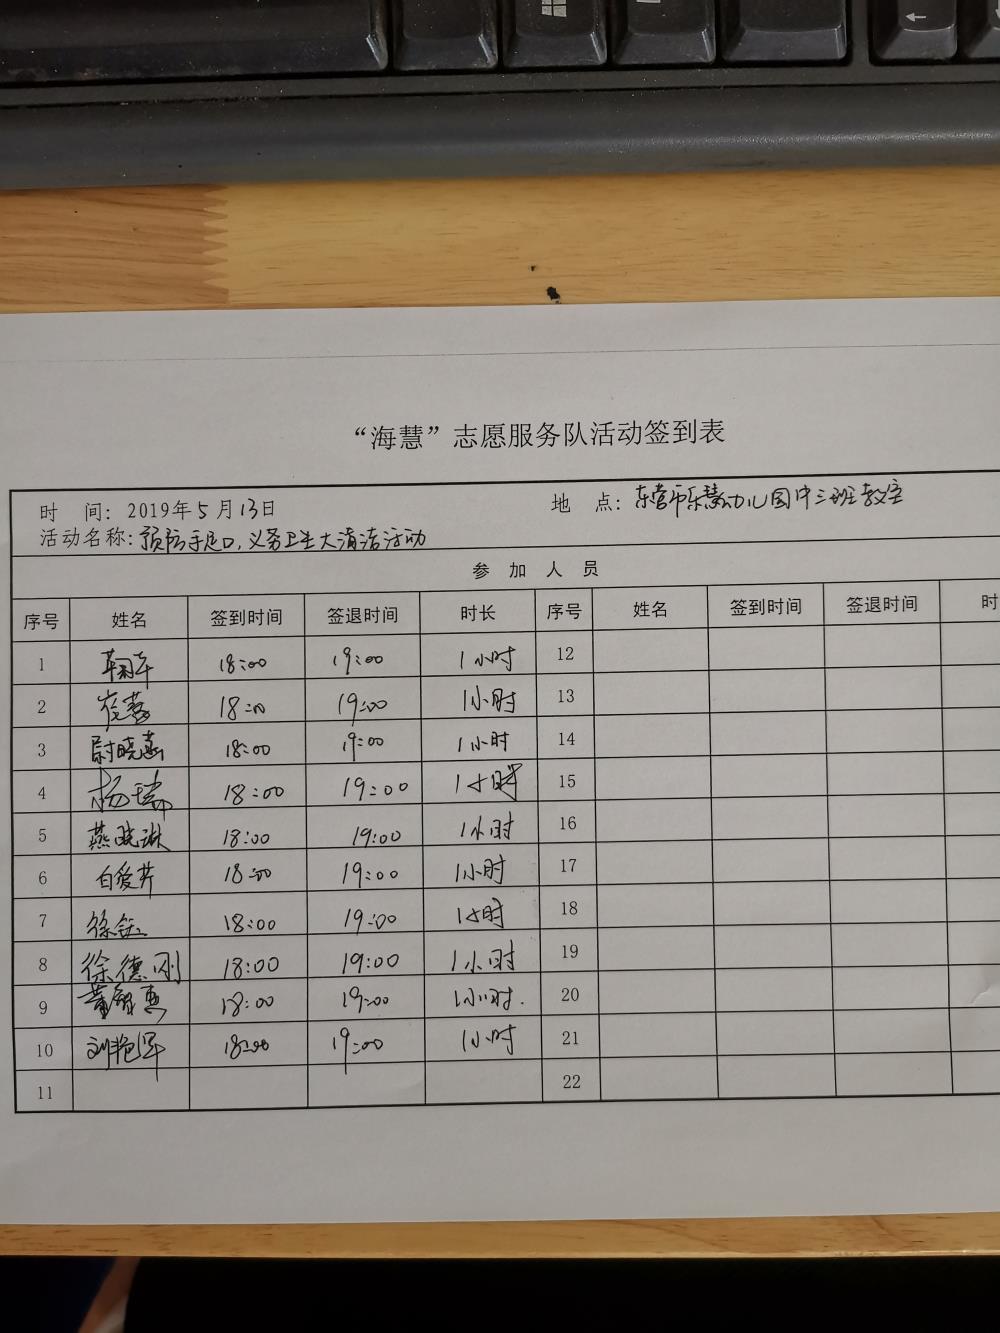 “海慧”志愿服务队活动签到表
时 间: 2019年5月13日 地 点: 东营市乐慧幼儿园中三班教室
活动名称: 预防手足口,义务卫生大清洁活动
参 加 人 员
序号 姓名 签到时间 签退时间 时长 序号 姓名 签到时间 签退时间 时
1 18:00 19:00 1小时 12
2 崔蓉 18:00 19:00 1小时 13
3 尉晓燕 18:00 19:00 1小时 14
4 杨瑞 18:00 19:00 1小时 15
5 燕晓琳 18:00 19:00 1小时 16
6 白爱芹 18:00 19:00 1小时 17
7 18:00 19:00 1小时 18
8 徐德刚 18:00 19:00 1小时 19
9 18:00 19:00 1小时. 20
10 刘艳军 18:00 19:00 1小时 21
11 22